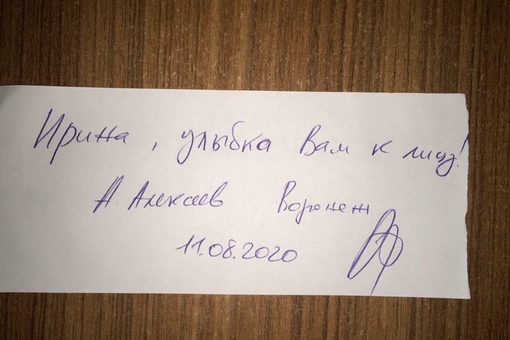 Ирина, улыбка Вам к лицу!
А Алексеев Воронеж
11.08.2020